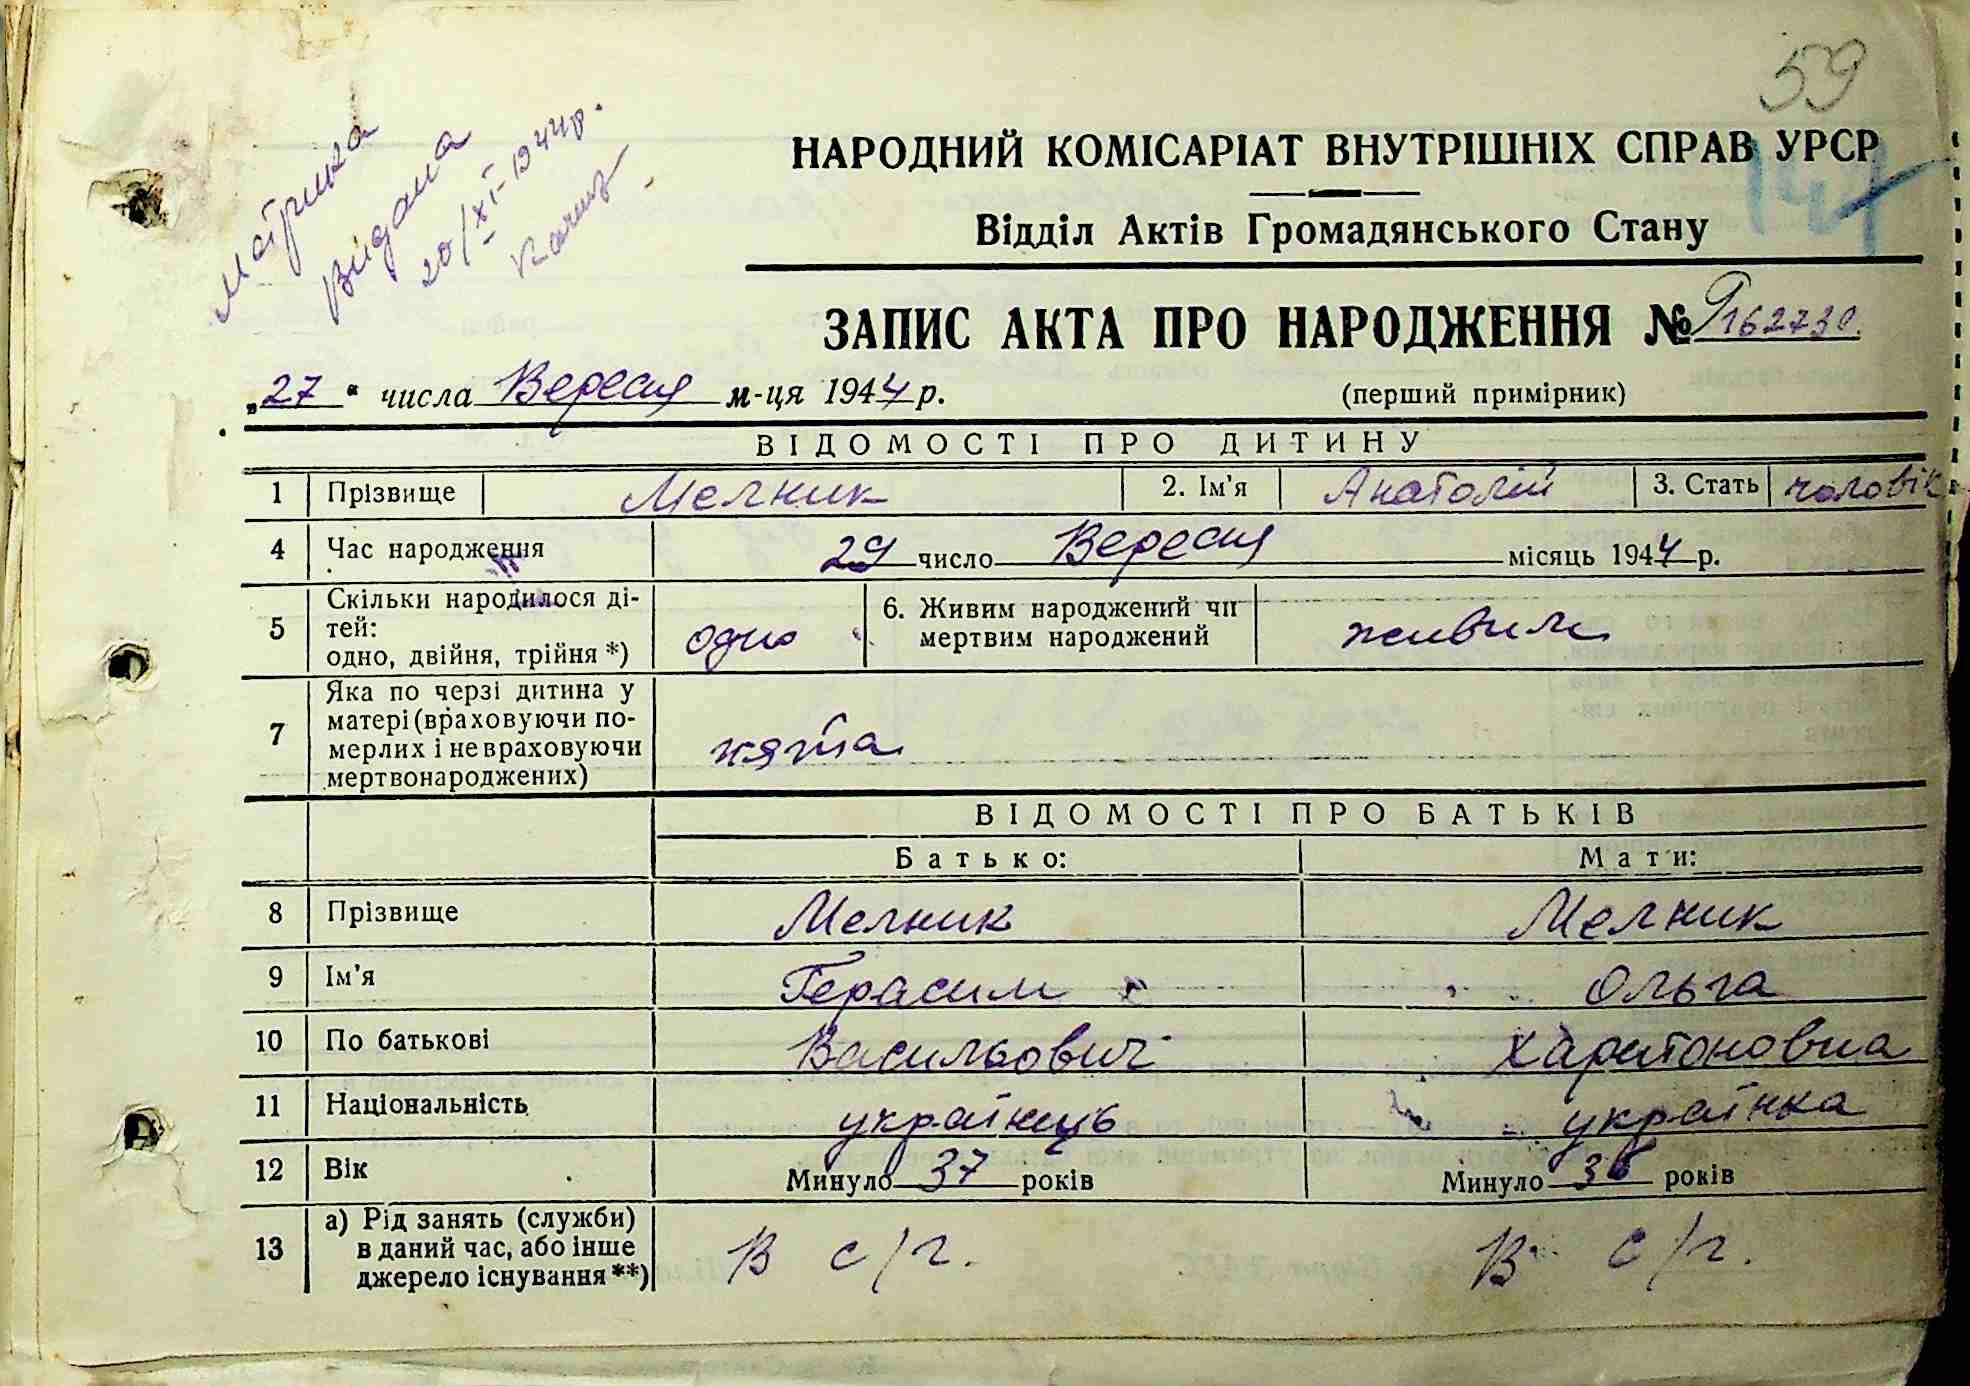 59
Матрика
Видана
20/XI-1944р.
НАРОДНИЙ КОМІСАРІАТ ВНУТРІШНІХ СПРАВ УРСР
Відділ Актів Громадянського Стану
ЗАПИС АКТА ПРО НАРОДЖЕННЯ № 162730.
„27“ числа Вересня м-ця 1944 р. (перший примірник)
ВІДОМОСТІ ПРО ДИТИНУ
1 Прізвище Мелник 2. Ім'я Анатолій 3. Стать чоловік
4 Час народження 29 число Вересня місяць 1944 р.
5 Скільки народилося ді-
тей:
одно, двійня, трійня *) одно 6. Живим народжений чи
мертвим народжений живим
7 Яка по черзі дитина у
матері (враховуючи по-
мерлих і не враховуючи
мертвонароджених) пята
ВІДОМОСТІ ПРО БАТЬКІВ
Батько: Мати:
8 Прізвище Мелник Мелник
9 Ім'я Герасим Ольга
10 По батькові Васильович Харитоновна
11 Національність українець українка
12 Вік Минуло 37 років Минуло 36 років
13 а) Рід занять (служби)
в даний час, або інше
джерело існування **) В с/г. В с/г.